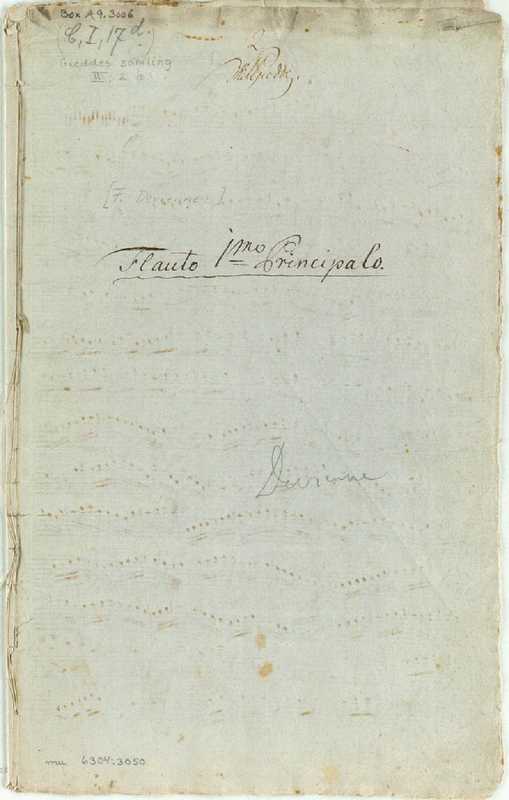 Box A9.3006
(C, I, 17 d.)
Gieddes samling
IX, 2 a
WHRGiedde.
[F. Devienne:]
Flauto 1mo Principalo.
Divienne
mu 6304:3050